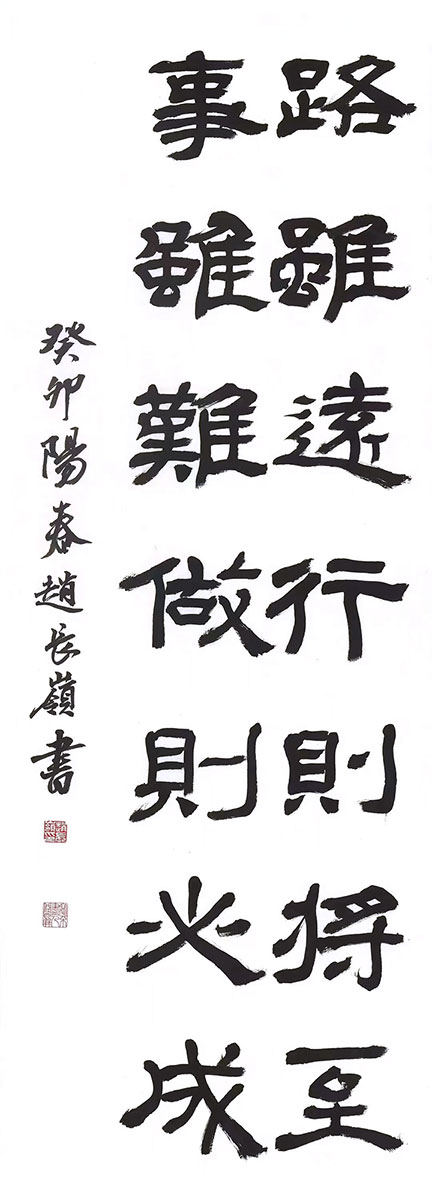 路雖遠行則將至
事雖難做則必成
癸卯陽春趙長嶺書